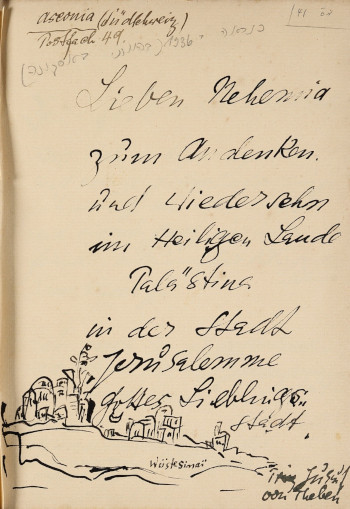 Ascona (Südschweiz)
Postfach 49.
Lieben Nehemia
zum Andenken.
und Wiedersehn
im Heiligen Lande
Palästina
in der Stadt
Jerusalemme
Gottes Lieblings-
stadt.
Wüste Sinai
Prinz Jusuf
von Theben